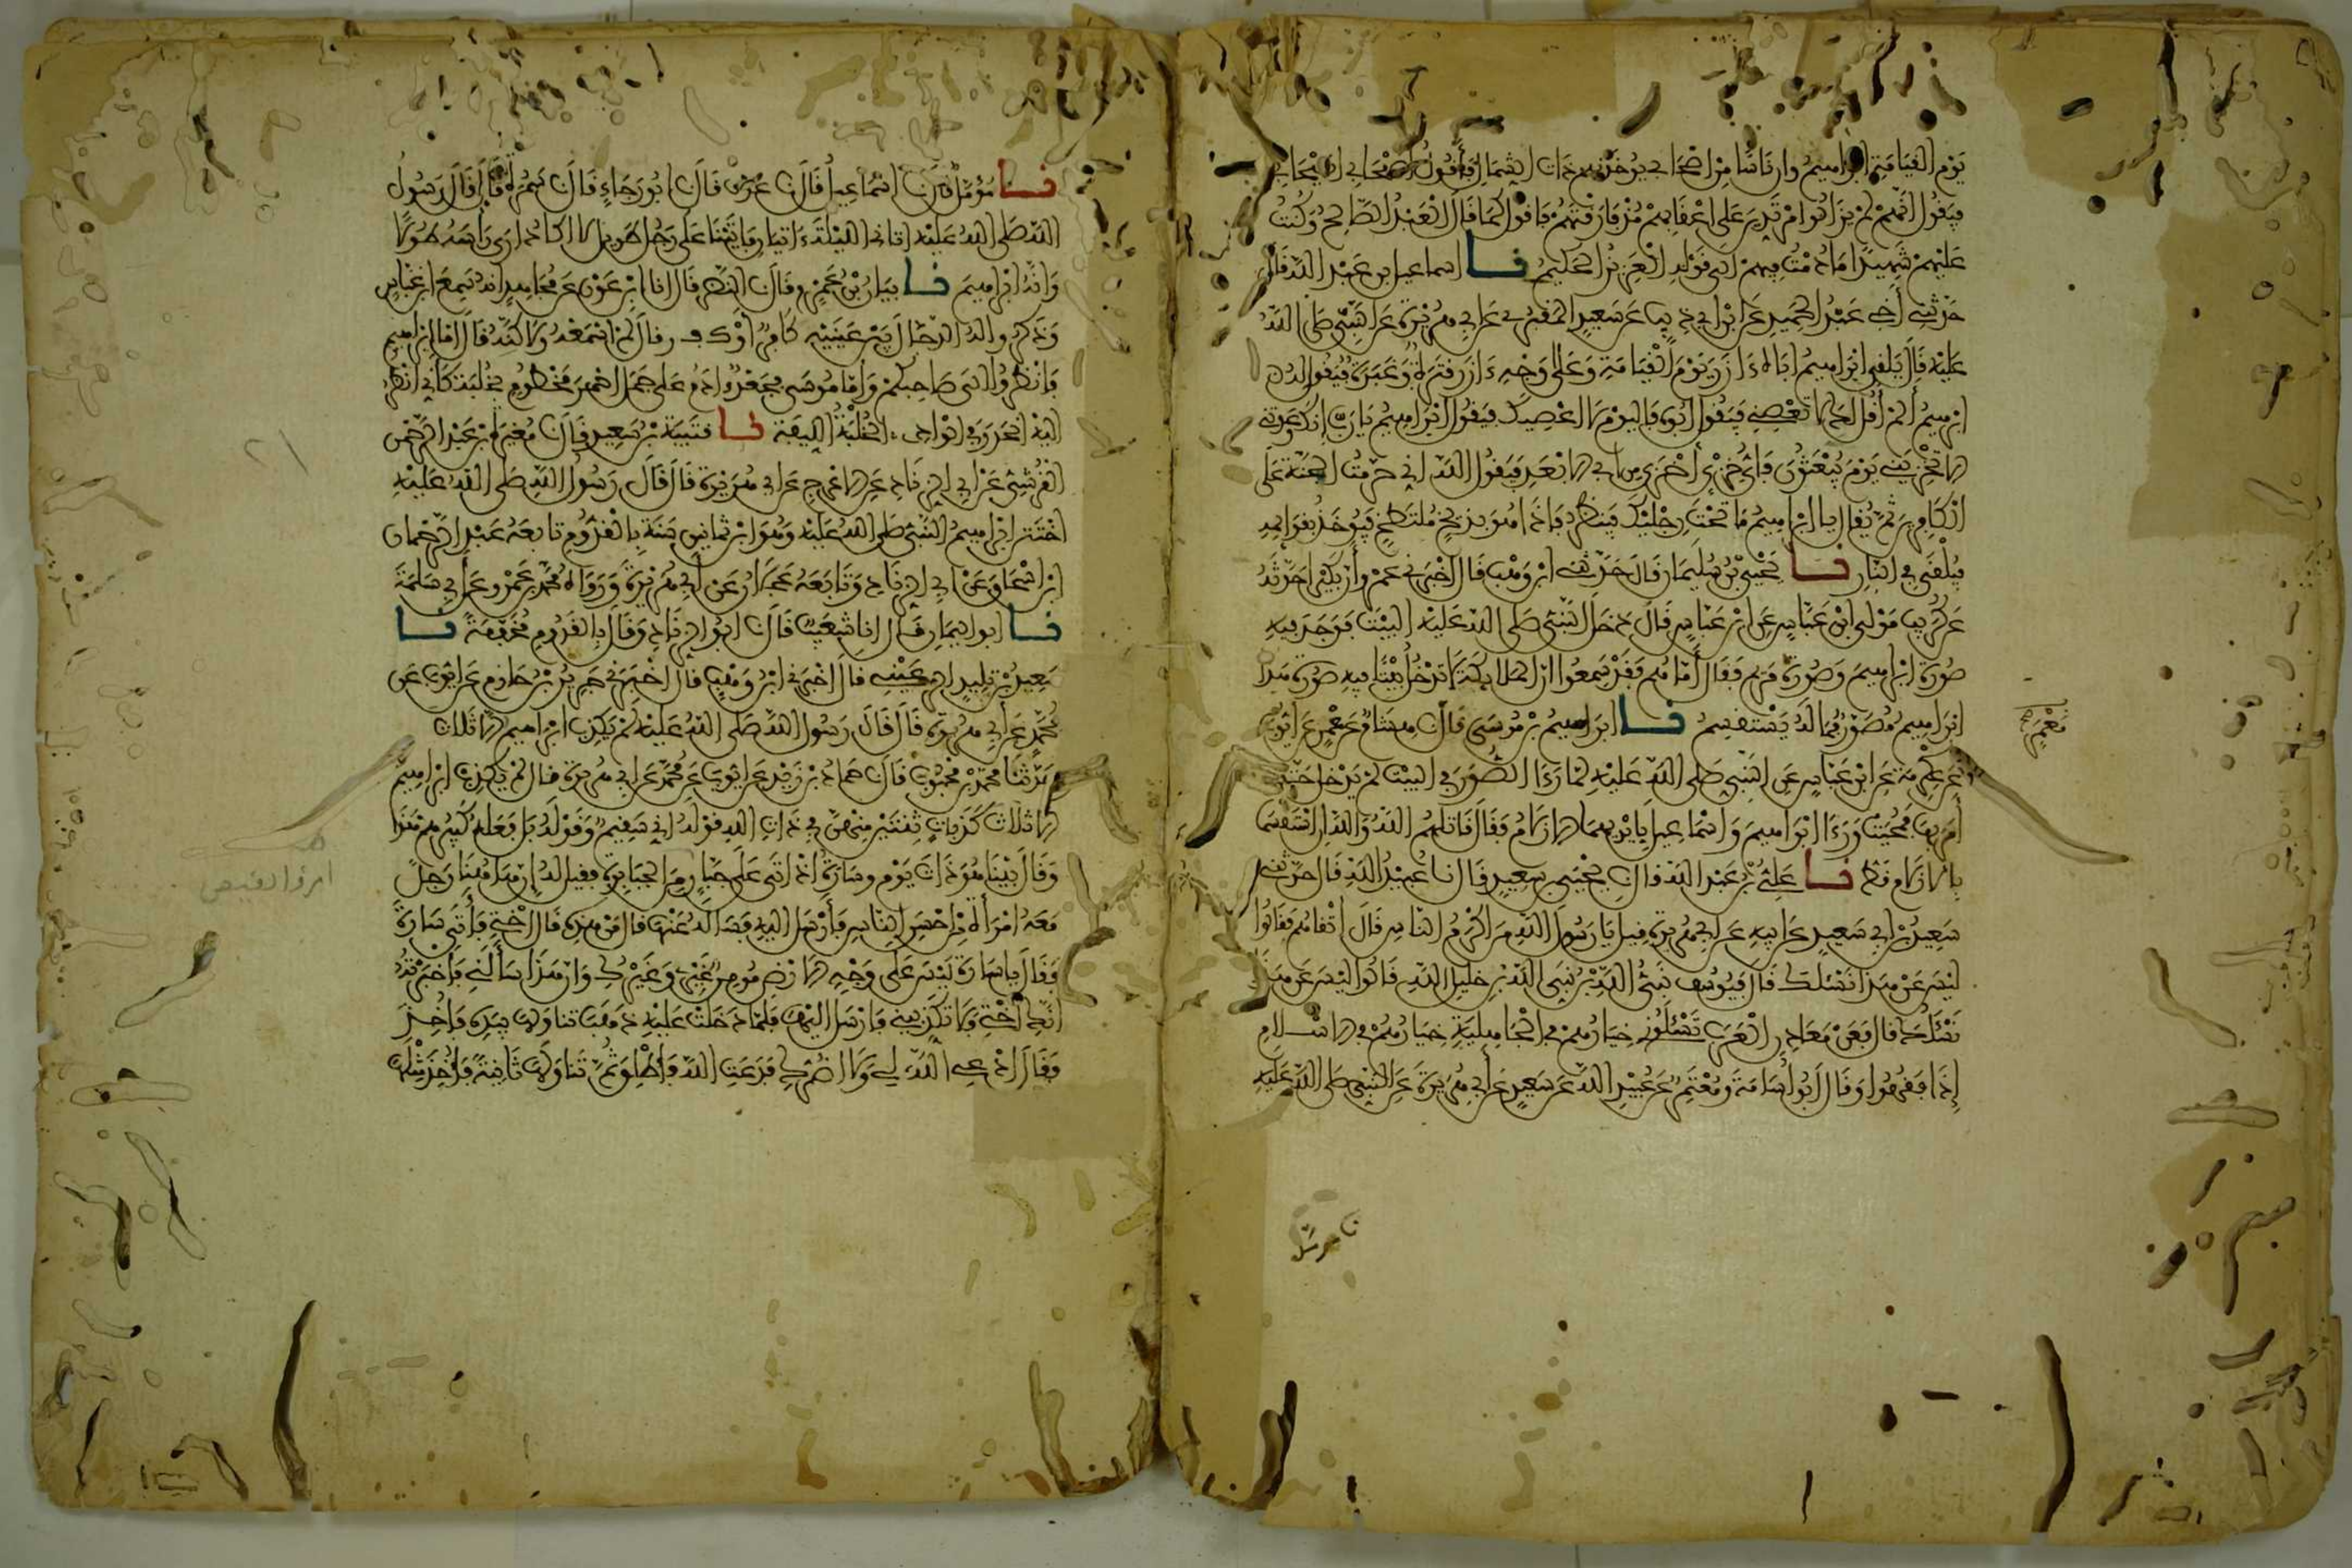 يَوْم القيَامَة ابراهيمُ وان نَاسًا مِن اصْحَابي يُوخَذ بهم ذات الشمال فأقُولُ اصْحَابي اصْحَابي
فيَقُول انّهمْ لمْ يزَالُوا مُرْتدّين عَلى اعْقابهمْ مُنْذ فارَقْتهُمْ فاقول كما قالَ العَبْدُ الصَّالحُ وَكُنتُ
عَليْهمْ شَهيدًا مَا دُمْتُ فيهمْ الى قَوْله العَزيزُ الحَكيمُ نا اسماعيل بن عَبْد الله قال
حَدّثني أخي عَبْدُ الحَميد عَن ابْن ابي ذيب عَن سَعيد المَقبُري عَن ابي هُرَيْرة عَن النّبي صَلى اللهُ
عَليْه قال يَلقى ابْرَاهيمُ ابَاهُ ءَازَرَ يَوْمَ القيَامَة وَعَلى وَجْه ءَازَرَ قتَرةٌ وَغبَرَةٌ فيَقُول لهُ
ابْرهيمُ ألمْ أقُل لكَ لا تعْصني فيَقُول ابُوهُ فاليوْمَ لا اعْصيكَ فيَقُول ابْرَاهيمُ يَا رَبّ انكَ وَعَدتني
ألا تخْزيَني يَوْمَ يُبْعَثُونَ فَايُّ خزْي أخْزى من ابي الابْعَد فيَقُول الله اني حَرّمْتُ الجَنةَ عَلى
الكافرين ثمّ يُقال يا ابْراهيمُ مَا تحْتَ رجْليْكَ فيَنظُر فاذا هُوَ بذيخ مُلتَطخ فيُوخَذ بقوَائمه
فيُلْقى في النار نا يَحْيى بْنُ سُليْمان قال حَدّثني ابْن وَهْب قال اخْبَرني عَمْرو أنّ بُكَيْرًا حَدّثهُ
عَن كُرَيب مَوْلى ابْن عَبَّاس عَن ابْن عَبَّاس قالَ دَخلَ النّبيُّ صَلى الله عَليْه البَيْتَ فوَجَدَ فيه
صُورَة ابْراهيمَ وَصُورَة مَرْيم فقَالَ أمّا هُم فقَدْ سَمعُوا انّ الملايكة لا تدْخُلُ بَيْتًا فيه صُورَة هَذا
ابْرَاهيمُ مُصَوَّرٌ فمَا لهُ يَسْتقسمُ نا ابْرَاهيمُ بْنُ مُوسَى قال نا هشامٌ عَن مَعْمَر عَن ايّوبَ
مَعْمَر
عَن عكْرمَة عَن ابْن عَبَّاس عَن النّبيّ صَلى الله عَليْه لمّا رَءَا الصُّوَرَ في البَيْت لمْ يَدْخل حَتّى
أمَر بهَا فمُحيَتْ وَرَءَا ابْرَاهيمَ وَاسْمَاعيل بأيْديهمَا الازْلامُ فقَال قاتلهُمُ اللهُ وَالله ان اسْتقسَمَا
بالازْلام قط نا عَليُّ بْنُ عَبْد الله قال نا يحْيَى بْن سَعيد قال نا عُبَيْدُ الله قال حَدّثني
سَعيدُ بْن ابي سَعيد عَن ابيه عَن ابي هُرَيْرة قيل يَا رَسُولَ الله مَن اكْرَمُ النّاس قَالَ اتقاهُم فقالُوا
ليْسَ عَنْ هَذا نَسْئلكَ قال فيُوسُف نبيُّ الله بْن نبيّ الله بْن خليل الله قالُوا ليْسَ عَن هَذا
نَسْئلكَ قال فعَنْ مَعَادن العَرَب تَسْئلُون خيَارُهمْ في الجَاهليَّة خيَارُهُمْ في الاسْلام
إذَا فقُهُوا وَقَالَ أبُو أسَامَة وَمُعْتَمرٌ عَن عُبَيْد الله عَن سَعيد عَن أبي هُرَيْرَة عَن النّبي صَلى الله عَليْه
نا مومّل
نا مُؤمّلٌ قال نا اسْمَاعيل قال نا عَوْفٌ قال نا ابُو رَجَاء قال نا سَمُرَةُ قالَ قالَ رَسُولُ
الله صَلى اللهُ عَليْه اتاني الليْلة ءاتيَان فاتَيْنا عَلى رَجُل طَويل لا اكادُ ارَى رَأسَهُ طُولا
وَانّهُ ابْراهيمَ نا بيَانُ بْنُ عَمْرو قال نا النضْر قال انا ابْن عَوْن عَن مُجَاهد انهُ سَمعَ ابْن عَبّاس
وَذكرُوا لهُ الدّجّال بَيْن عَيْنيْه كَافرٌ أوْ ك ف ر قالَ لمْ اسْمَعْهُ وَلاكنّهُ قالَ امّا ابْراهيم
فانْظُرُوا الى صَاحبكمْ وَامّا مُوسَى فجَعْدٌ ءادَمُ عَلى جَمَل احْمَرَ مَخْطُوم بخُلبَة كَأني انْظُر
اليْه انحَدَرَ في الوَادي الخُلْبَةُ الليفة نا قتيْبَة بْن سَعيد قال نا مُغيرَة بْن عَبْد الرّحْمن
القرَشيُّ عَن ابي الزنَاد عَن الاعْرَج عَن ابي هُرَيْرَة قالَ قالَ رَسُول الله صَلى اللهُ عَليْه
اخْتَتنَ ابْراهيمُ النّبيُّ صَلى اللهُ عَليْه وَهُوَ ابْن ثمَانين سَنَة بالقدُّوم تابعَهُ عَبْد الرّحْمان
ابْن اسْحَاق عَن ابي الزنَاد وَتابَعَهُ عَجْلانُ عَن ابي هُرَيْرَة وَرَوَاهُ مُحَمّد بن عَمْرو عَن ابي سَلمَة
نا ابو اليمَان قال انا شُعَيْبٌ قال نا ابُو الزنَاد وَقالَ بالقَدُوم مُخَفّفَة نا
سَعيدُ بْن تليد الرّعَيْني قالَ اخْبَرَني ابْنُ وَهْب قالَ اخْبَرَني جَريرُ بْنُ حَازم عَن ايّوبَ عَن
مُحَمّد عَن أبي هُرَيْرَة قالَ قالَ رَسُولُ الله صَلى اللهُ عَليْه لمْ يَكذبْ ابْرَاهيم الا ثلاثا
حَدّثنَا مُحَمّد بْن مَحْبُوب قال نا حَمادُ بْن زَيْد عَن ايّوبَ عَن مُحَمّد عَن ابي هُرَيْرة قالَ لمْ يَكذبْ ابْرَاهيمُ
الا ثلاث كَذبَات ثنتَيْن منْهنَّ في ذات الله قوْلهُ اني سَقيمٌ وَقوْلهُ بَلْ فعَلهُ كَبيرُهمْ هَذا
وَقالَ بَيْنَا هُوَ ذاتَ يَوْم وسَارَة اذ اتَى عَلى جَبّار منَ الجَبَابرَة فقيلَ لهُ إنّ هَاهُنَا رَجلٌ
مَعَهُ امْرَأةٌ منْ احْسَن النّاس فأرْسَلَ اليْه فسَألهُ عَنْها قال مَنْ هذه قال أخْتي فأتَى سَارَة
فقَالَ يا سَارَة ليْسَ عَلى وَجْه الارْض مُومنٌ غيْري وَغيْرُك وَانّ هَذَا سَألني فاخْبَرْتهُ
أنك أخْتي فلا تُكَذّبيني فارْسَلَ اليْهَا فلمّا دَخلتْ عَليْه ذهَبَ تنَاوَلهَا بيَده فأخذَ
فقَالَ ادْعي الله لي وَلا اضُرّك فدَعَت اللهَ فأطْلقَ ثُمَّ تَنَاوَلهَا ثَانيَةً فأخذَ مثْلهَا
٢١
امرؤ القيس